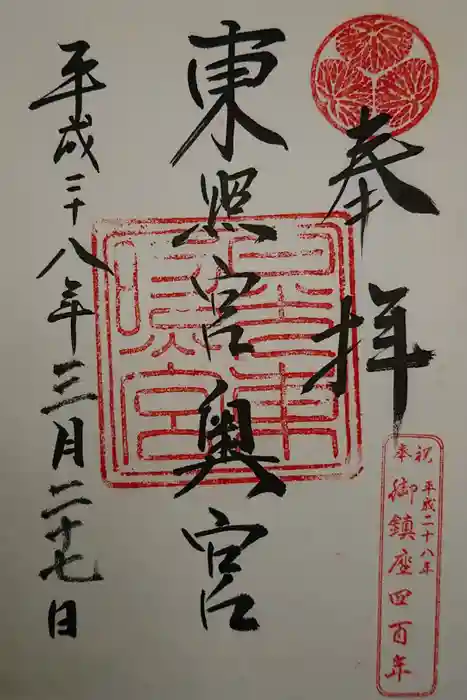 奉拝
東照宮奥宮
平成二十八年三月二十七日
奉祝 平成二十八年
御鎮座四百年